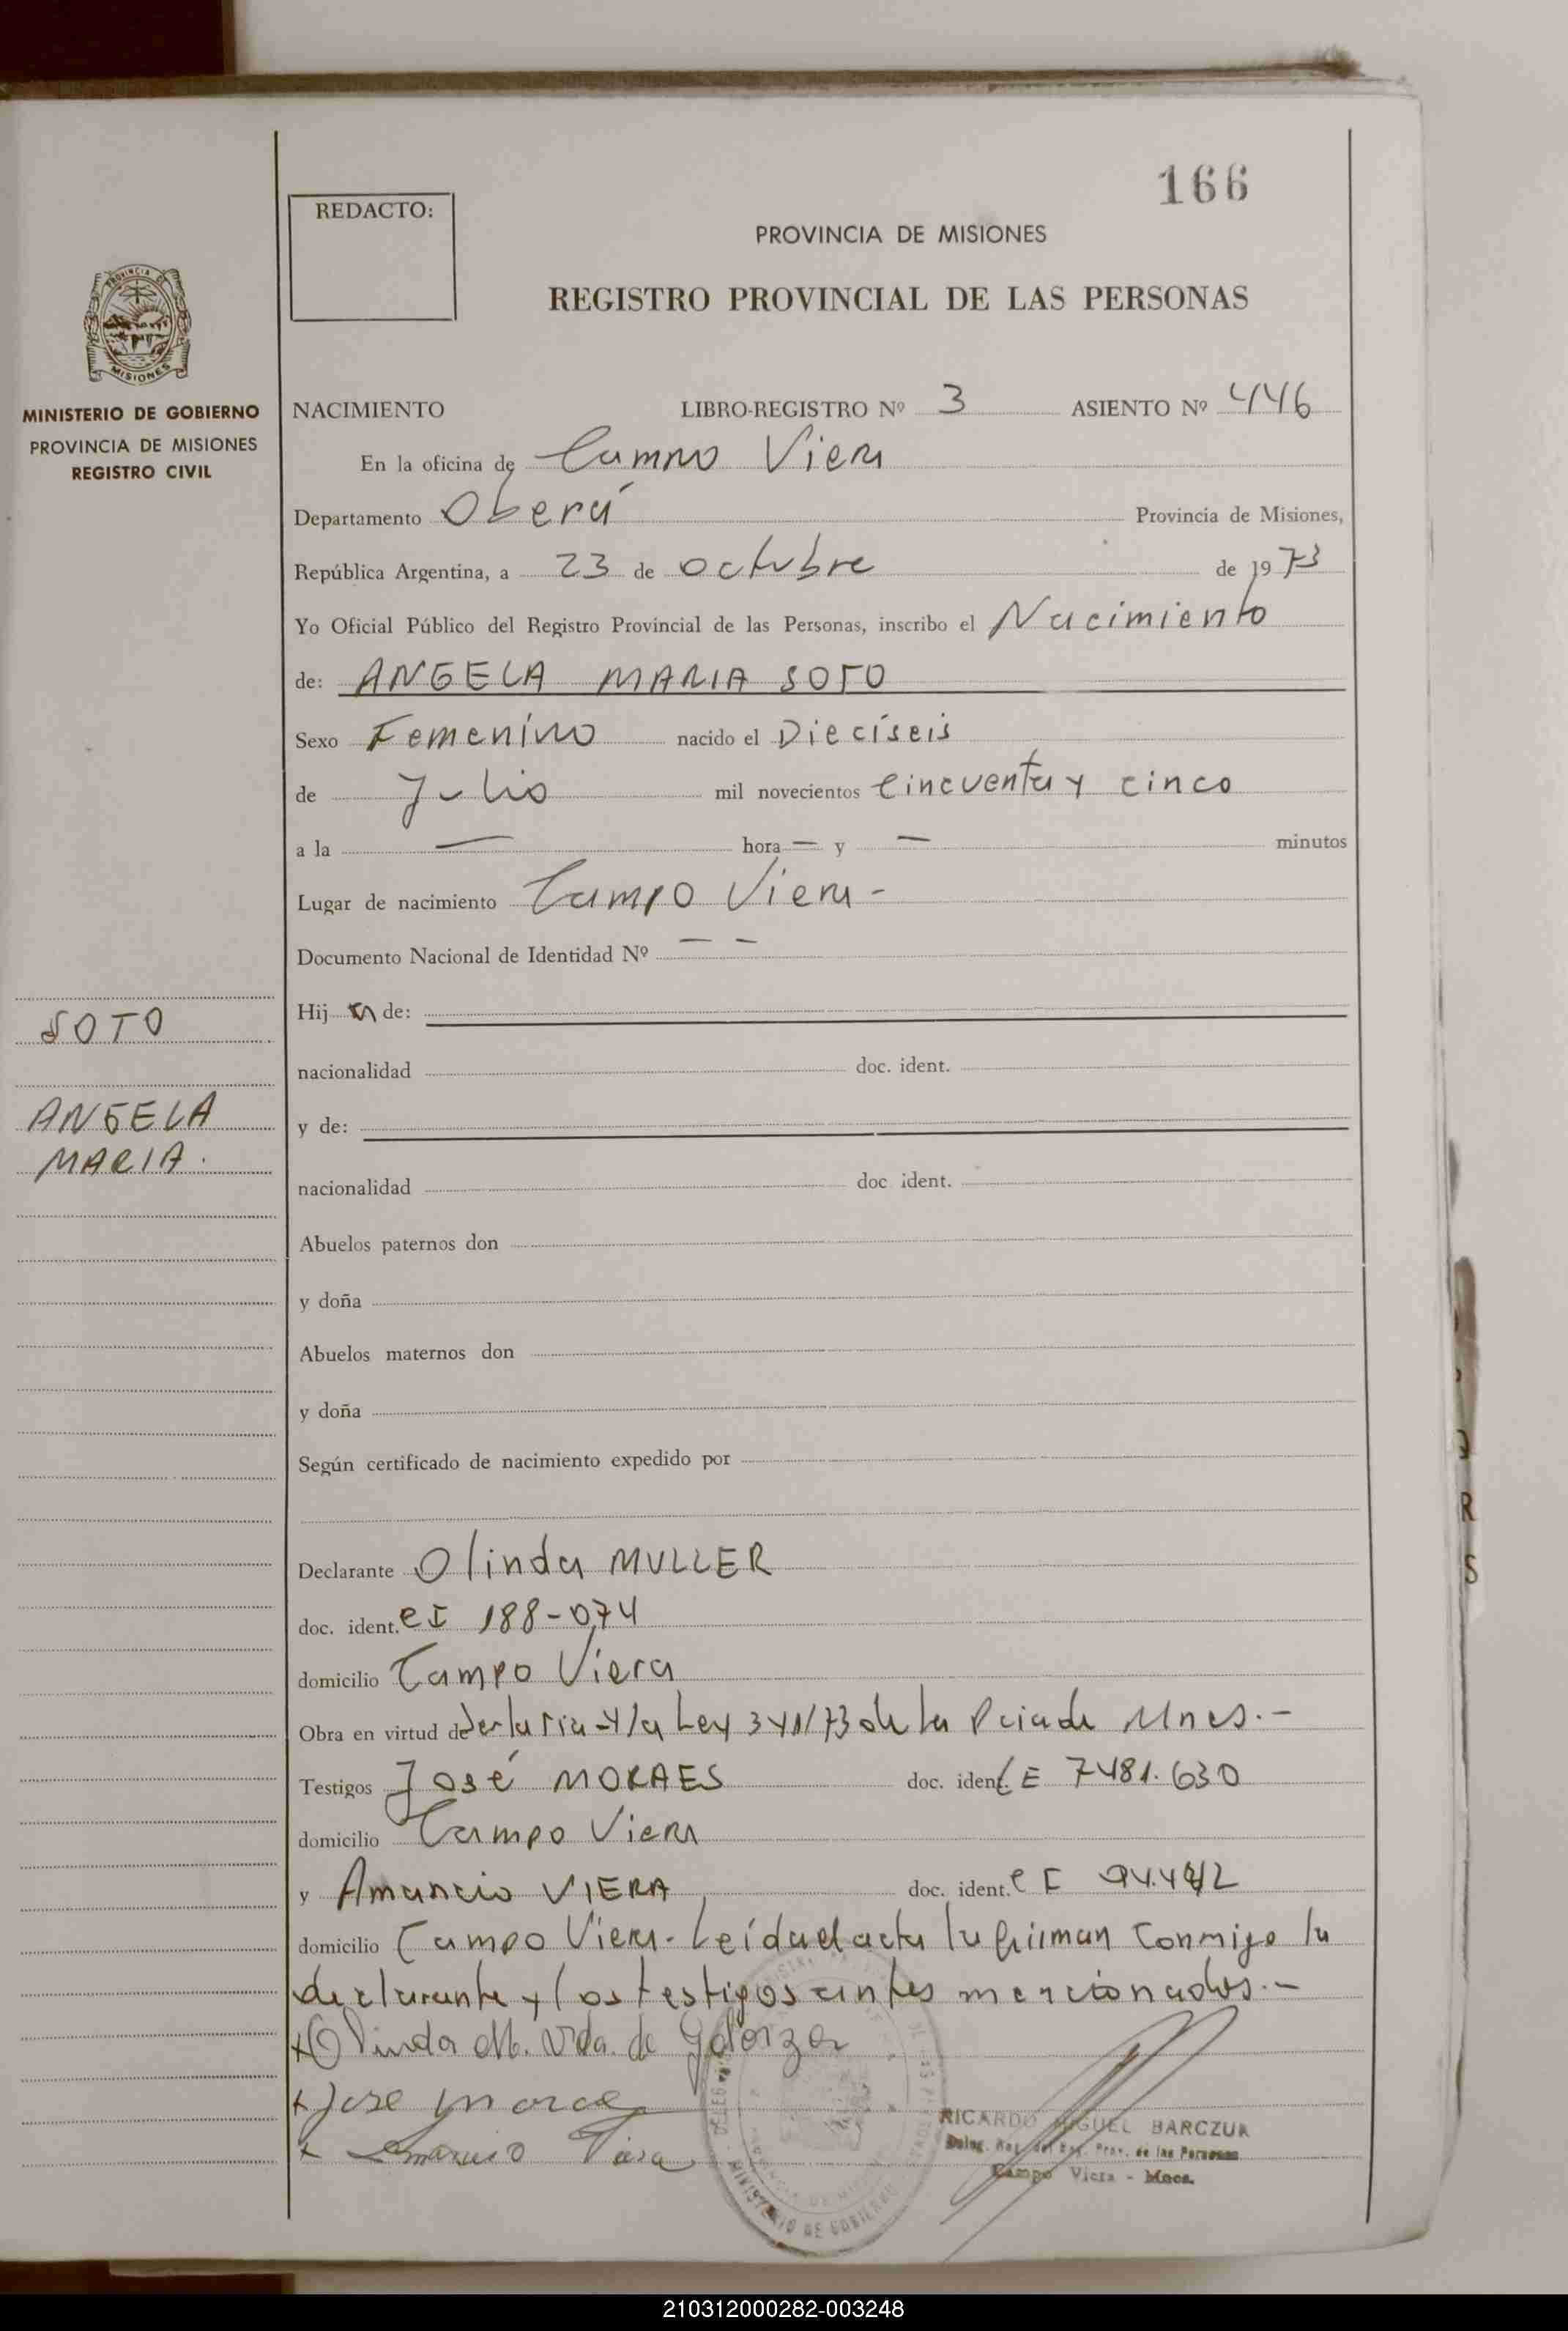 166
REDACTO:
PROVINCIA DE MISIONES
REGISTRO PROVINCIAL DE LAS PERSONAS
PROVINCIA DE
MISIONES
MINISTERIO DE GOBIERNO
PROVINCIA DE MISIONES
REGISTRO CIVIL
NACIMIENTO LIBRO-REGISTRO Nº 3 ASIENTO Nº 446
En la oficina de Campo Viera
Departamento Oberá Provincia de Misiones,
República Argentina, a 23 de octubre de 1973
Yo Oficial Público del Registro Provincial de las Personas, inscribo el Nacimiento
de: ANGELA MARIA SOTO
Sexo Femenino nacido el Dieciseis
de Julio mil novecientos Cincuenta y cinco
a la — hora — y — minutos
Lugar de nacimiento Campo Viera -
Documento Nacional de Identidad Nº — —
Hij a de:
nacionalidad doc. ident.
y de:
nacionalidad doc. ident.
Abuelos paternos don
y doña
Abuelos maternos don
y doña
Según certificado de nacimiento expedido por
SOTO
ANGELA
MARIA.
Declarante Olinda MULLER
doc. ident. CI 188-074
domicilio Campo Viera
Obra en virtud de y la Ley de la Pcia de Mnes.-
Testigos José MORAES doc. ident. LE 7481.630
domicilio Campo Viera
y Amancio VIERA doc. ident. CI
domicilio Campo Viera - Leída el acta la firman conmigo la
declarante y los testigos antes mencionados.-
x Olinda M. Vda. de
x Jose
x Amancio Viera
RICARDO MIGUEL BARCZUK
Deleg. del Reg. Prov. de las Personas
Campo Viera - Mnes.
MINISTERIO DE GOBIERNO
R
S
210312000282-003248